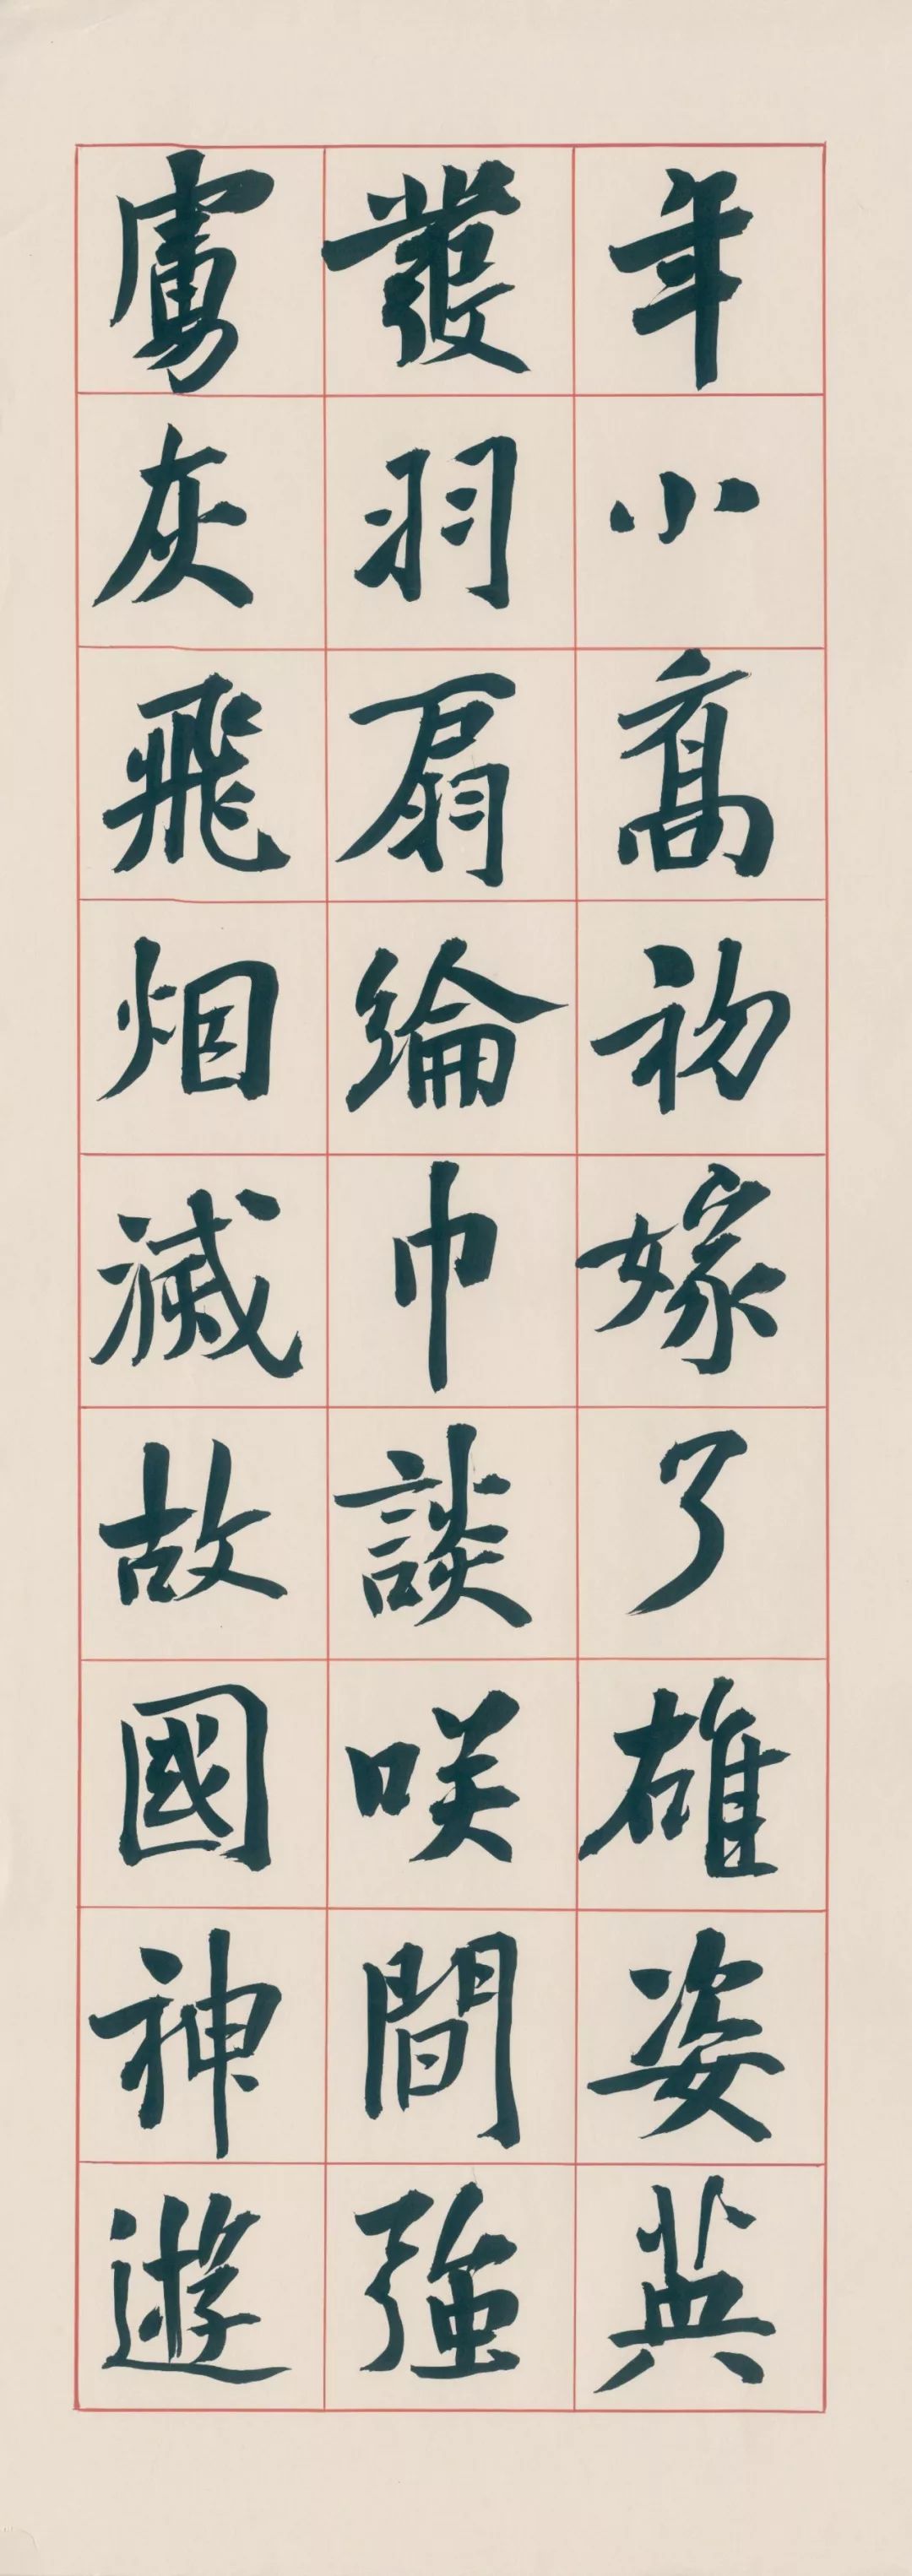 年小喬初嫁了雄姿英
發羽扇綸巾談咲間強
虜灰飛烟滅故國神遊